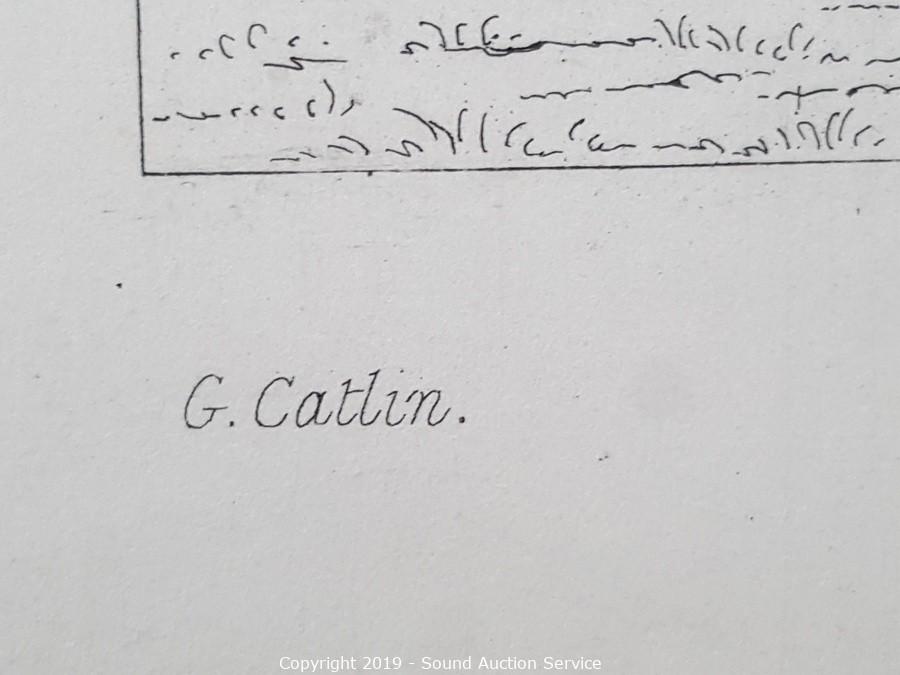 G. Catlin.
Copyright 2019 - Sound Auction Service